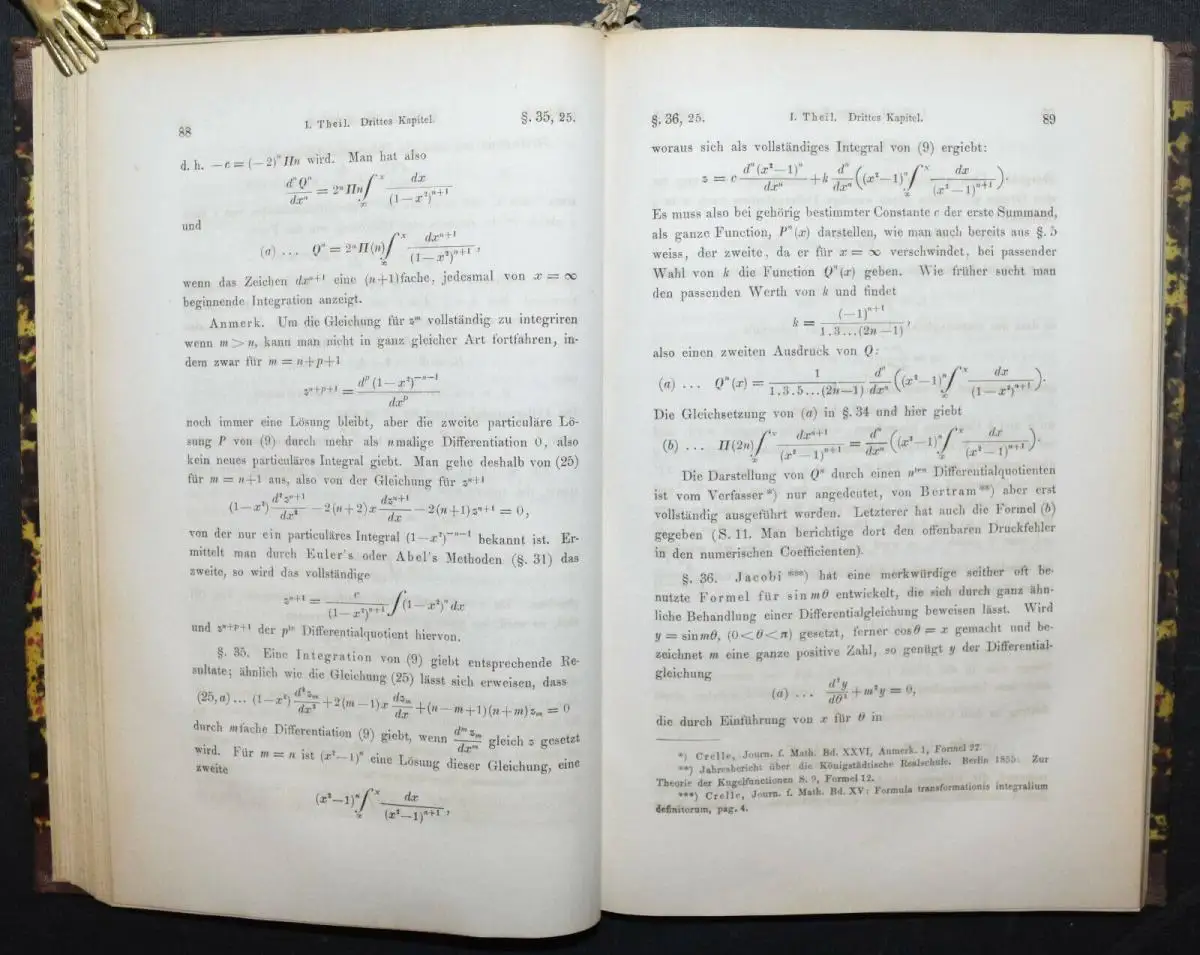 88 I. Theil. Drittes Kapitel. §. 35, 25.
d. h. −c = (−2)ⁿ Πn wird. Man hat also
dⁿQⁿ/dxⁿ = 2ⁿΠn ∫_∞^x dx/(1−x²)ⁿ⁺¹
und
(a) ... Qⁿ = 2ⁿΠ(n) ∫_∞^x dxⁿ⁺¹/(1−x²)ⁿ⁺¹,
wenn das Zeichen dxⁿ⁺¹ eine (n+1)fache, jedesmal von x = ∞
beginnende Integration anzeigt.
Anmerk. Um die Gleichung für zᵐ vollständig zu integriren
wenn m > n, kann man nicht in ganz gleicher Art fortfahren, in-
dem zwar für m = n+p+1
zⁿ⁺ᵖ⁺¹ = dᵖ(1−x²)⁻ⁿ⁻¹/dxᵖ
noch immer eine Lösung bleibt, aber die zweite particuläre Lö-
sung P von (9) durch mehr als nmalige Differentiation 0, also
kein neues particuläres Integral giebt. Man gehe deshalb von (25)
für m = n+1 aus, also von der Gleichung für zⁿ⁺¹
(1−x²) d²zⁿ⁺¹/dx² − 2(n+2)x dzⁿ⁺¹/dx − 2(n+1)zⁿ⁺¹ = 0,
von der nur ein particuläres Integral (1−x²)⁻ⁿ⁻¹ bekannt ist. Er-
mittelt man durch Euler's oder Abel's Methoden (§. 31) das
zweite, so wird das vollständige
zⁿ⁺¹ = c/(1−x²)ⁿ⁺¹ ∫(1−x²)ⁿ dx
und zⁿ⁺ᵖ⁺¹ der pᵗᵉ Differentialquotient hiervon.
§. 35. Eine Integration von (9) giebt entsprechende Re-
sultate; ähnlich wie die Gleichung (25) lässt sich erweisen, dass
(25, a) ... (1−x²) d²zₘ/dx² + 2(m−1)x dzₘ/dx + (n−m+1)(n+m)zₘ = 0
durch mfache Differentiation (9) giebt, wenn dᵐzₘ/dxᵐ gleich z gesetzt
wird. Für m = n ist (x²−1)ⁿ eine Lösung dieser Gleichung, eine
zweite
(x²−1)ⁿ ∫_∞^x dx/(x²−1)ⁿ⁺¹,
§. 36, 25. I. Theil. Drittes Kapitel. 89
woraus sich als vollständiges Integral von (9) ergiebt:
z = c dⁿ(x²−1)ⁿ/dxⁿ + k dⁿ/dxⁿ((x²−1)ⁿ ∫_∞^x dx/(x²−1)ⁿ⁺¹).
Es muss also bei gehörig bestimmter Constante c der erste Summand,
als ganze Function, Pⁿ(x) darstellen, wie man auch bereits aus §. 5
weiss, der zweite, da er für x = ∞ verschwindet, bei passender
Wahl von k die Function Qⁿ(x) geben. Wie früher sucht man
den passenden Werth von k und findet
k = (−1)ⁿ⁺¹/1.3...(2n−1),
also einen zweiten Ausdruck von Q:
(a) ... Qⁿ(x) = 1/1.3.5...(2n−1) dⁿ/dxⁿ((x²−1)ⁿ ∫_∞^x dx/(1−x²)ⁿ⁺¹).
Die Gleichsetzung von (a) in §. 34 und hier giebt
(b) ... Π(2n) ∫_∞^x dxⁿ⁺¹/(x²−1)ⁿ⁺¹ = dⁿ/dxⁿ((x²−1)ⁿ ∫_∞^x dx/(x²−1)ⁿ⁺¹).
Die Darstellung von Qⁿ durch einen nᵗᵉⁿ Differentialquotienten
ist vom Verfasser*) nur angedeutet, von Bertram**) aber erst
vollständig ausgeführt worden. Letzterer hat auch die Formel (b)
gegeben (S. 11. Man berichtige dort den offenbaren Druckfehler
in den numerischen Coefficienten).
§. 36. Jacobi***) hat eine merkwürdige seither oft be-
nutzte Formel für sin mθ entwickelt, die sich durch ganz ähn-
liche Behandlung einer Differentialgleichung beweisen lässt. Wird
y = sin mθ, (0<θ<π) gesetzt, ferner cosθ = x gemacht und be-
zeichnet m eine ganze positive Zahl, so genügt y der Differential-
gleichung
(a) ... d²y/dθ² + m²y = 0,
die durch Einführung von x für θ in
*) Crelle, Journ. f. Math. Bd. XXVI, Anmerk. 1, Formel 27.
**) Jahresbericht über die Königstädtische Realschule. Berlin 1855: Zur
Theorie der Kugelfunctionen S. 9, Formel 12.
***) Crelle, Journ. f. Math. Bd. XV: Formula transformationis integralium
definitorum, pag. 4.